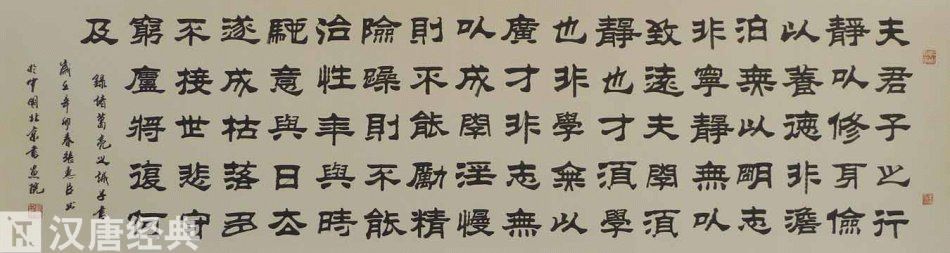 夫君子之行
靜以修身儉
以養德非澹
泊無以明志
非寧靜無以
致遠夫學須
靜也才須學
也非學無以
廣才非志無
以成學淫慢
則不能勵精
險躁則不能
治性年與時
馳意與日去
遂成枯落多
不接世悲守
窮廬將復何
及
錄諸葛亮又誡子書
辛卯春
於中國北京書畫院
汉唐经典